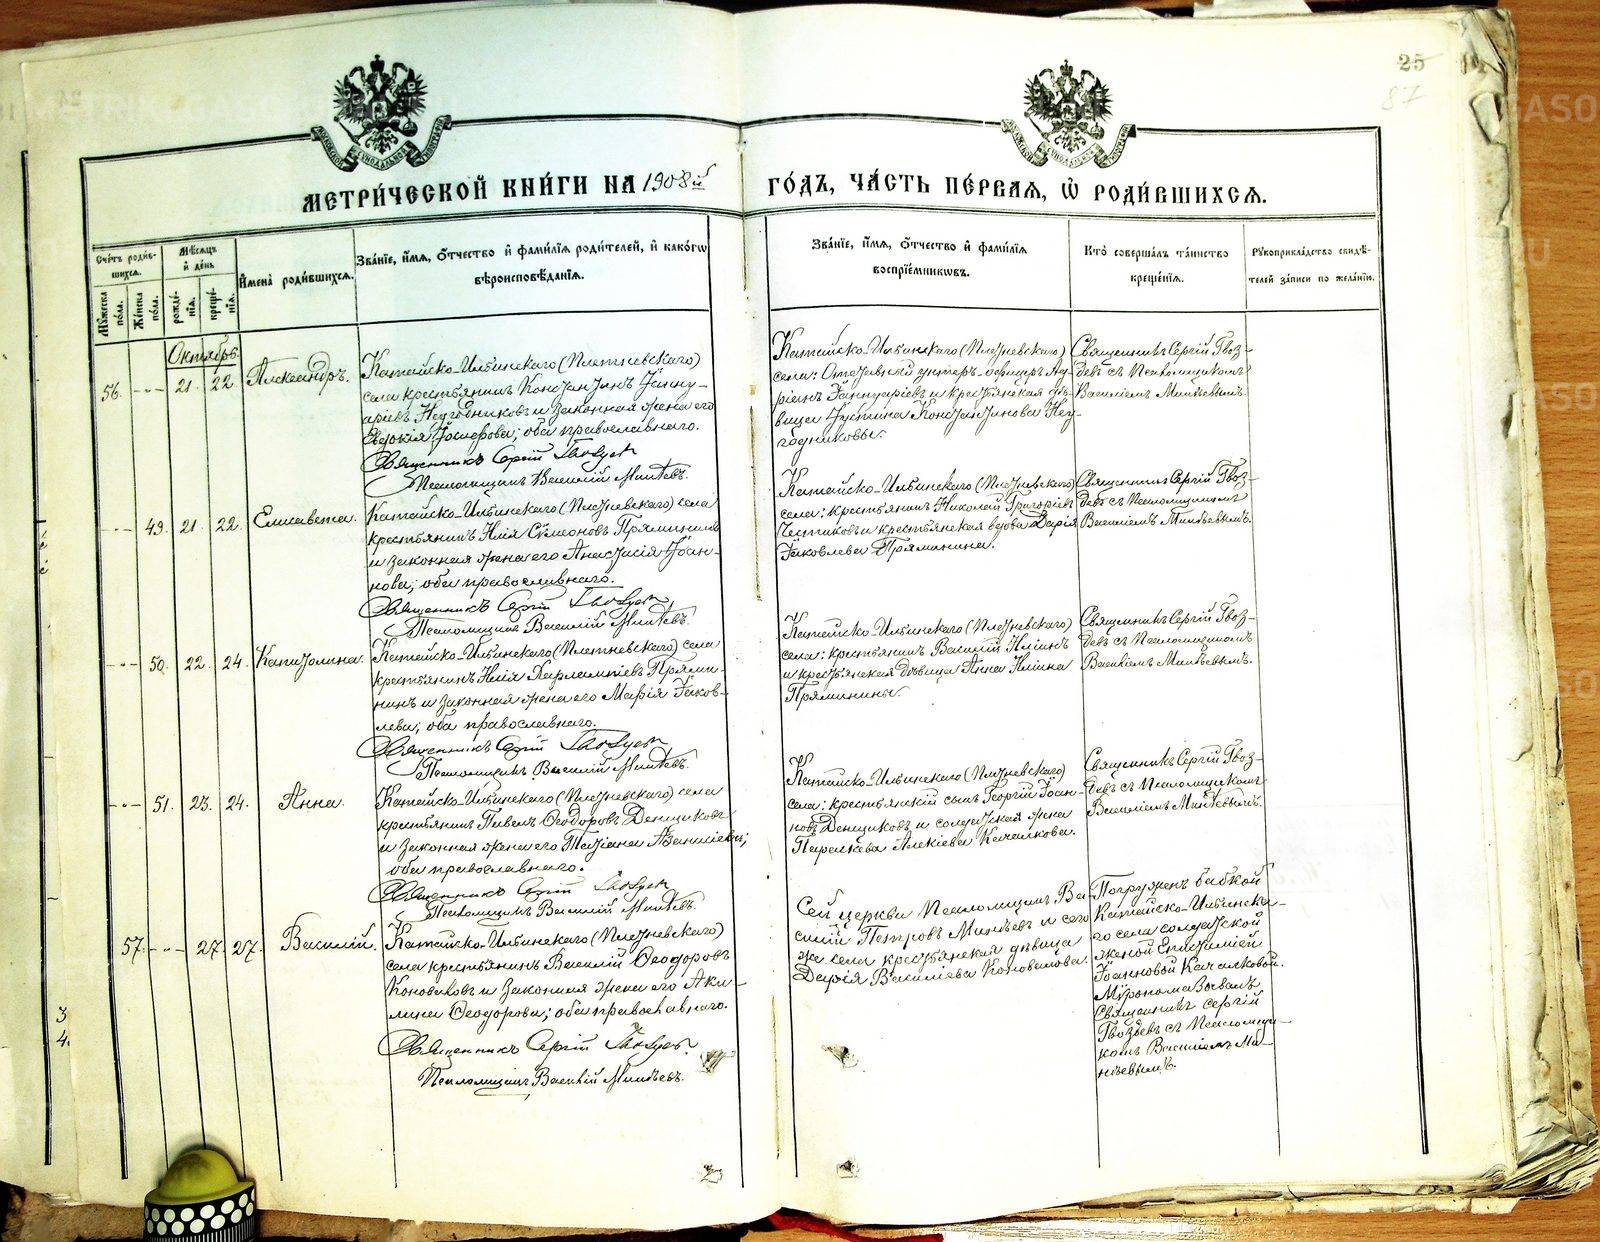 25
87
МЕТРИ́ЧЕСКОЙ КНИ́ГИ НА 1908й ГО́ДЪ, ЧА́СТЬ ПЕ́РВАЯ, Ѡ҆ РОДИ́ВШИХСЯ.
Сче́тъ роди́в-
шихся.
Мꙋ́жеска по́ла.
Же́нска по́ла.
Мѣ́сяцъ и҆ де́нь
рожде́-
нїя.
креще́-
нїя.
И҆мена̀ роди́вшихся.
Зва́нїе, и҆́мя, ѻ҆́тчество и҆ фами́лїя роди́телей, и҆ како́гѡ
вѣроисповѣ́данїя.
Зва́нїе, и҆́мя, ѻ҆́тчество и҆ фами́лїя
воспрїе́мникѡвъ.
Кто̀ соверша́лъ та́инство
креще́нїя.
Рꙋкоприкла́дство свидѣ́-
телей за́писи по жела́нїю.
Октябрь
56. 21. 22. Александръ.
Катайско-Ильинскаго (Плетневскаго)
села крестьянинъ Константинъ Іанну-
аріевъ Неугодниковъ и законная жена его
Евдокія Іосифова; оба православнаго.
Священникъ Сергій Гвоздевъ
Псаломщикъ Василій Минѣевъ.
Катайско-Ильинскаго (Плетневскаго)
села: Отставный унтеръ-офицеръ Ад-
ріанъ Іаннуаріевъ и крестьянская дѣ-
вица Іустина Константинова Неу-
годниковы.
Священникъ Сергій Гвоз-
девъ съ Псаломщикомъ
Василіемъ Минѣевымъ.
49. 21. 22. Елисавета.
Катайско-Ильинскаго (Плетневскаго) села
крестьянинъ Илія Сѵмеоновъ Прямининъ
и законная жена его Анастасія Іоан-
нова; оба православнаго.
Священникъ Сергій Гвоздевъ
Псаломщикъ Василій Минѣевъ.
Катайско-Ильинскаго (Плетневскаго)
села: крестьянинъ Николай Григоріевъ
Чистяковъ и крестьянская вдова Дарія
Іаковлева Пряминина.
Священникъ Сергій Гвоз-
девъ съ Псаломщикомъ
Василіемъ Минѣевымъ.
50. 22. 24. Капитолина.
Катайско-Ильинскаго (Плетневскаго) села
крестьянинъ Илія Харлампіевъ Прями-
нинъ и законная жена его Марія Іаков-
лева; оба православнаго.
Священникъ Сергій Гвоздевъ
Псаломщикъ Василій Минѣевъ.
Катайско-Ильинскаго (Плетневскаго)
села: крестьянинъ Василій Иліинъ
и крестьянская дѣвица Анна Иліина
Пряминины.
Священникъ Сергій Гвоз-
девъ съ Псаломщикомъ
Василіемъ Минѣевымъ.
51. 23. 24. Анна.
Катайско-Ильинскаго (Плетневскаго) села
крестьянинъ Павелъ Ѳеодоровъ Денщиковъ
и законная жена его Татіана Аѳанасіева;
оба православнаго.
Священникъ Сергій Гвоздевъ
Псаломщикъ Василій Минѣевъ.
Катайско-Ильинскаго (Плетневскаго)
села: крестьянскій сынъ Георгій Іоан-
новъ Денщиковъ и солдатская жена
Параскева Алексіева Качалкова.
Священникъ Сергій Гвоз-
девъ съ Псаломщикомъ
Василіемъ Минѣевымъ.
57. 27. 27. Василій.
Катайско-Ильинскаго (Плетневскаго)
села крестьянинъ Василій Ѳеодоровъ
Коноваловъ и законная жена его Аки-
лина Ѳеодорова; оба православнаго.
Священникъ Сергій Гвоздевъ.
Псаломщикъ Василій Минѣевъ.
Сей церкви Псаломщикъ Ва-
силій Петровъ Минѣевъ и сего
же села крестьянская дѣвица
Дарія Василіева Коновалова.
Погруженъ бабкой
Катайско-Ильинска-
го села солдатской
женой Епистиміей
Іоанновой Качалковой.
Мѵропомазовалъ
Священникъ Сергій
Гвоздевъ съ Псаломщи-
комъ Василіемъ Ми-
нѣевымъ.
3
4.